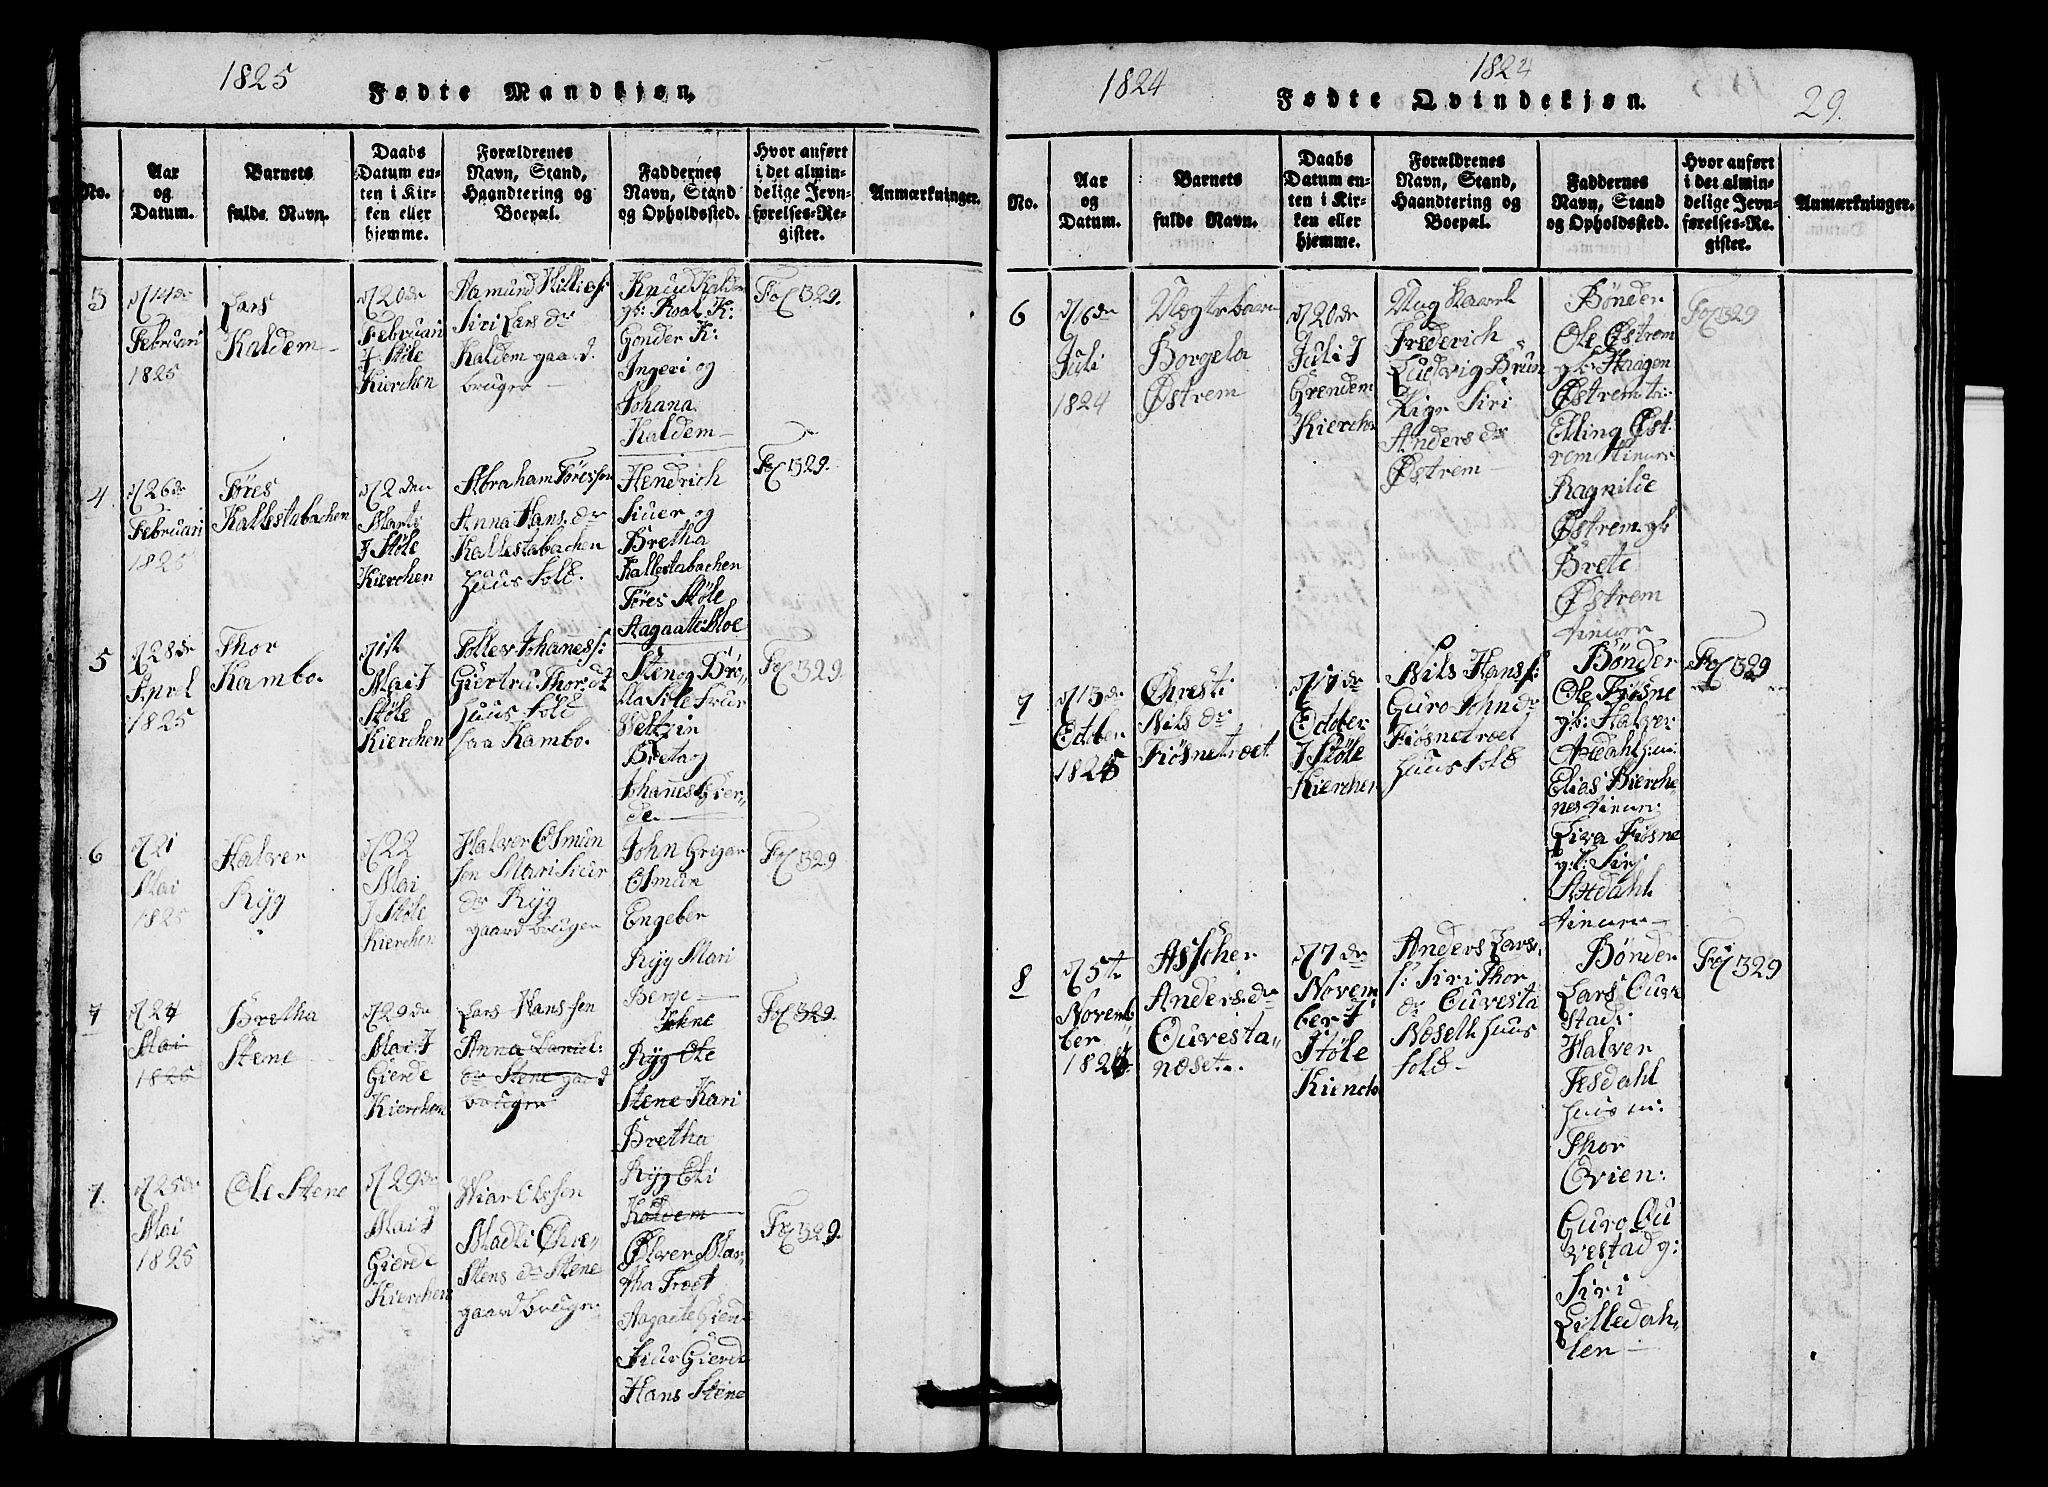 1825
Fødte Mandkjøn,
No.
Aar
og
Datum.
Barnets
fulde Navn.
Daabs
Datum en-
ten i Kir-
ken eller
hjemme.
Forældrenes
Navn, Stand,
Haandtering og
Boepæl.
Faddernes
Navn, Stand
og Opholdssted.
Hvor anført
i det almin-
delige Jevn-
førelses-Re-
gister.
Anmærkninger.
3
14de
Februari
1825
Lars
Kaldem
20de
Februari
J Støle
Kierchen
Aamund
Siri Lars dr
Kaldem gaard
bruger
Knud Kaldem
gb: Roal K:
Gonder K:
Ingeri og
Johana
Kaldem
329.
4
26de
Februari
1825
Føres
Kallestabachen
2den
Marti
J Støle
Kierchen
Abraham Føressen
Anna Hans dr
Kallestabachen
huus fold.
Hendrich
Siuer og
Bretha
Kallestabachen
Føres Støle
Aagaate Moe
329.
5
28de
Aprl
1825
Thor
Kambo.
1st
Mai J
Støle
Kierchen
Tollev Johaness:
Giertru Thor.dr
huus fold
paa Kambo.
Sten og Bro,,
Bretog
Johanes Gier,,
de
329.
6
21
Mai
1825
Halver
Ryg
22
Mai
J Støle
Kierchen
Halver Osmun
sen Mari Siur
dr Ryg
gaard bruger
John Grigar
Osmun
Engeber
Ryg Mari
Berge
329
7
24
Mai
1825
Bretha
Stene
29de
Mai J
Gierde
Kierchen
Lars Hanssen
Anna Daniel:
dr Stene gaard
bruger
Johne
Ryg Ole
Stene Kari
Bretha
Ryg Eli
Kaldem
329.
7.
25de
Mai
1825
Ole Stene
29de
Mai J
Gierde
Kierchen
Iviar Olessen
Madli Chre,,
stens dr Stene
gaard bruger
Ølver Mar
tha Troet
Aagaate Gierde
Siur Gierde
Hans Stene
329.
1824
1824
Fødte Qvindekjøn.
29.
No.
Aar
og
Datum.
Barnets
fulde Navn.
Daabs
Datum en-
ten i Kir-
ken eller
hjemme.
Forældrenes
Navn, Stand,
Haandtering og
Boepæl.
Faddernes
Navn, Stand
og Opholdssted.
Hvor anført
i det almin-
delige Jevn-
førelses-Re-
gister.
Anmærkninger.
6
16de
Juli
1824
Borgela
Østrem
20de
Juli J
Grendem
Kierche
Ung Kaarl
Frederich
Ludvig Brun
Pige Siri
Anders dr
Østrem
Bønder
Ole Østrem
gb: Haagen
Østrem tr:
Elling Øst
rem tienere
Ragnilde
Østrem gb
Brete
Østrem
tienere
329
7
13de
Octber
1824
Chresti
Nils dr
Fiøsnetroet
17de
Octber
J Støle
Kierchen
Nils Hanss:
Guro John dr
Fiøsnetroet
huus fold
Bønder
Ole Fiøsne
gb: Halver
Axdahl h.m:
Elias Kierche
nes tienere
Siva Fiøsne
gb: Siri
Axdahl
tienere
329
8
5te
Novem
ber
1824
Asscher
Anders.dr
Ouvesta,,
nøset
7de
Novem
ber J
Støle
Kierche
Anders Lars
s: Siri Thor
dr Ouvesta
Nøseth huus
fold
Bønder
Lars Ouve
stad:
Halver
Tesdahl
huus m:
Thor
Ovien:
Guro Ou
vestad g:
Siri
Lilledah,,
len
329